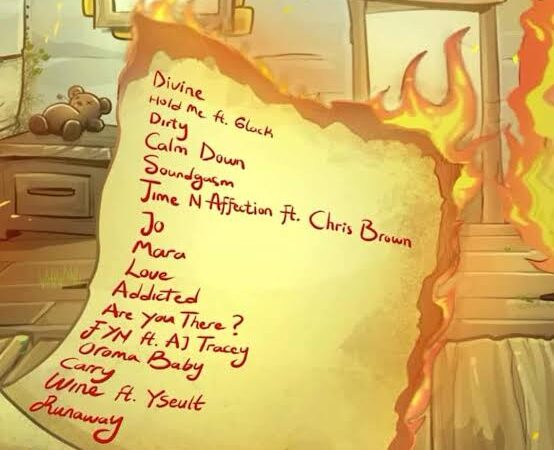 Divine
Hold me ft. 6lack
Dirty
Calm Down
Soundgasm
Time N Affection ft. Chris Brown
Jo
Mara
Love
Addicted
Are You There?
FYN ft. AJ Tracey
Oroma Baby
Carry
Wine ft. Yseult
Runaway